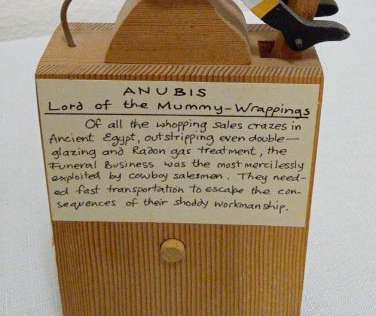 ANUBIS
Lord of the Mummy-Wrappings
Of all the whopping sales crazes in
Ancient Egypt, outstripping even double-
glazing and Radon gas treatment, the
Funeral Business was the most mercilessly
exploited by cowboy salesmen. They need-
ed fast transportation to escape the con-
sequences of their shoddy workmanship.